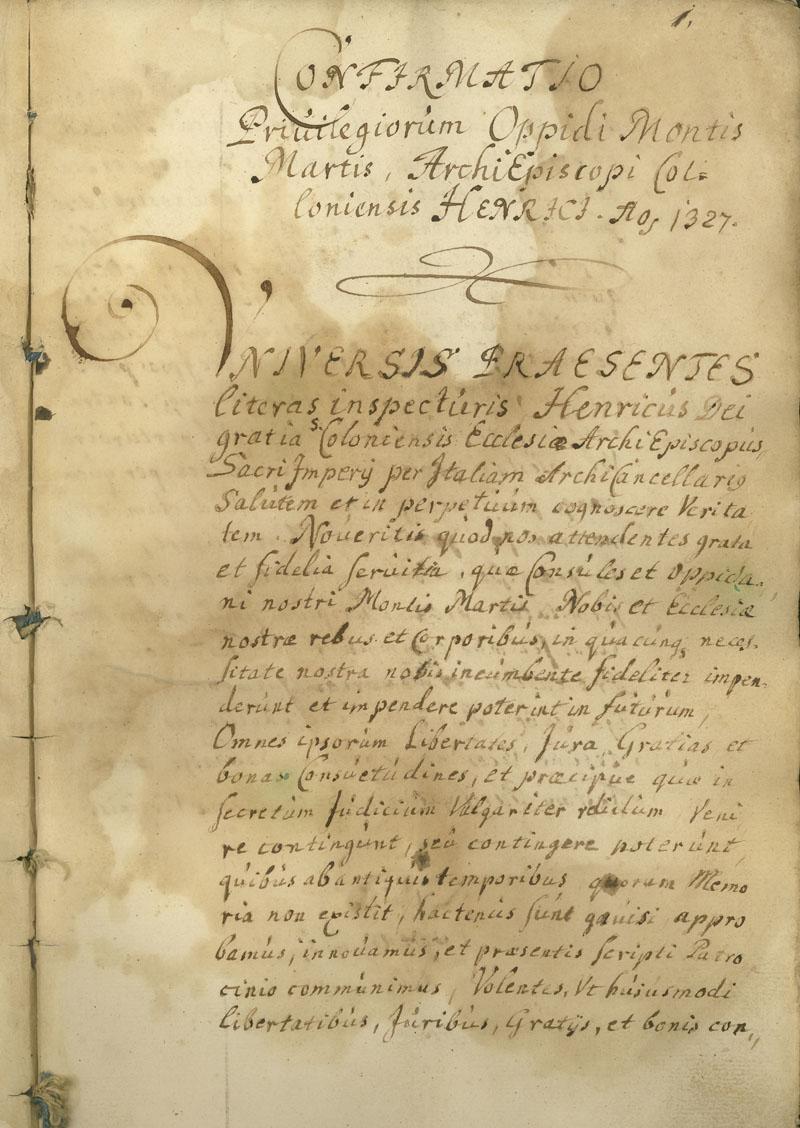 1.
CONFIRMATIO
Priuilegiorum Oppidi Montis
Martis, ArchiEpiscopi Col=
loniensis HENRICI. Ao, 1327.
VNIVERSIS PRAESENTES
literas inspecturis Henricus Dei
gratia S. Coloniensis Ecclesiæ ArchiEpiscopus,
Sacri Imperij per Italiam ArchiCancellariq
Salutem et in perpetuum cognoscere Verita
tem. Noueritis quod nos attendentes grata
et fidelia seruitia, quæ Consules et Oppida,
ni nostri Montis Martis Nobis et Ecclesiæ
nostræ rebus et Corporibus, in quacunq neces-
sitate nostra nobis incumbente fideliter impen-
derunt et impendere poterint in futurum,
Omnes ipsorum Libertates, Jura, Gratias et
bonas Consuetudines, et præcipue quæ in
secretum Judicium Vulgariter dictum Veni
re contingunt, seu contingere poterunt,
quibus ab antiquis temporibus quorum Memo
ria non existit, hactenus sunt gauisi appro
bamus, innouamus, et præsentis scripti Patro
cinio communimus, Volentes, Vt huiusmodi
Libertatibus, Juribus, Gratijs, et bonis con,,